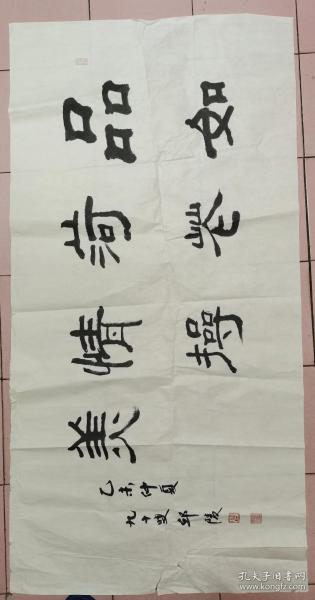 品如
荷花
情操
美
乙未仲夏
九十叟邱陵
孔夫子旧书网
www.kongfz.com